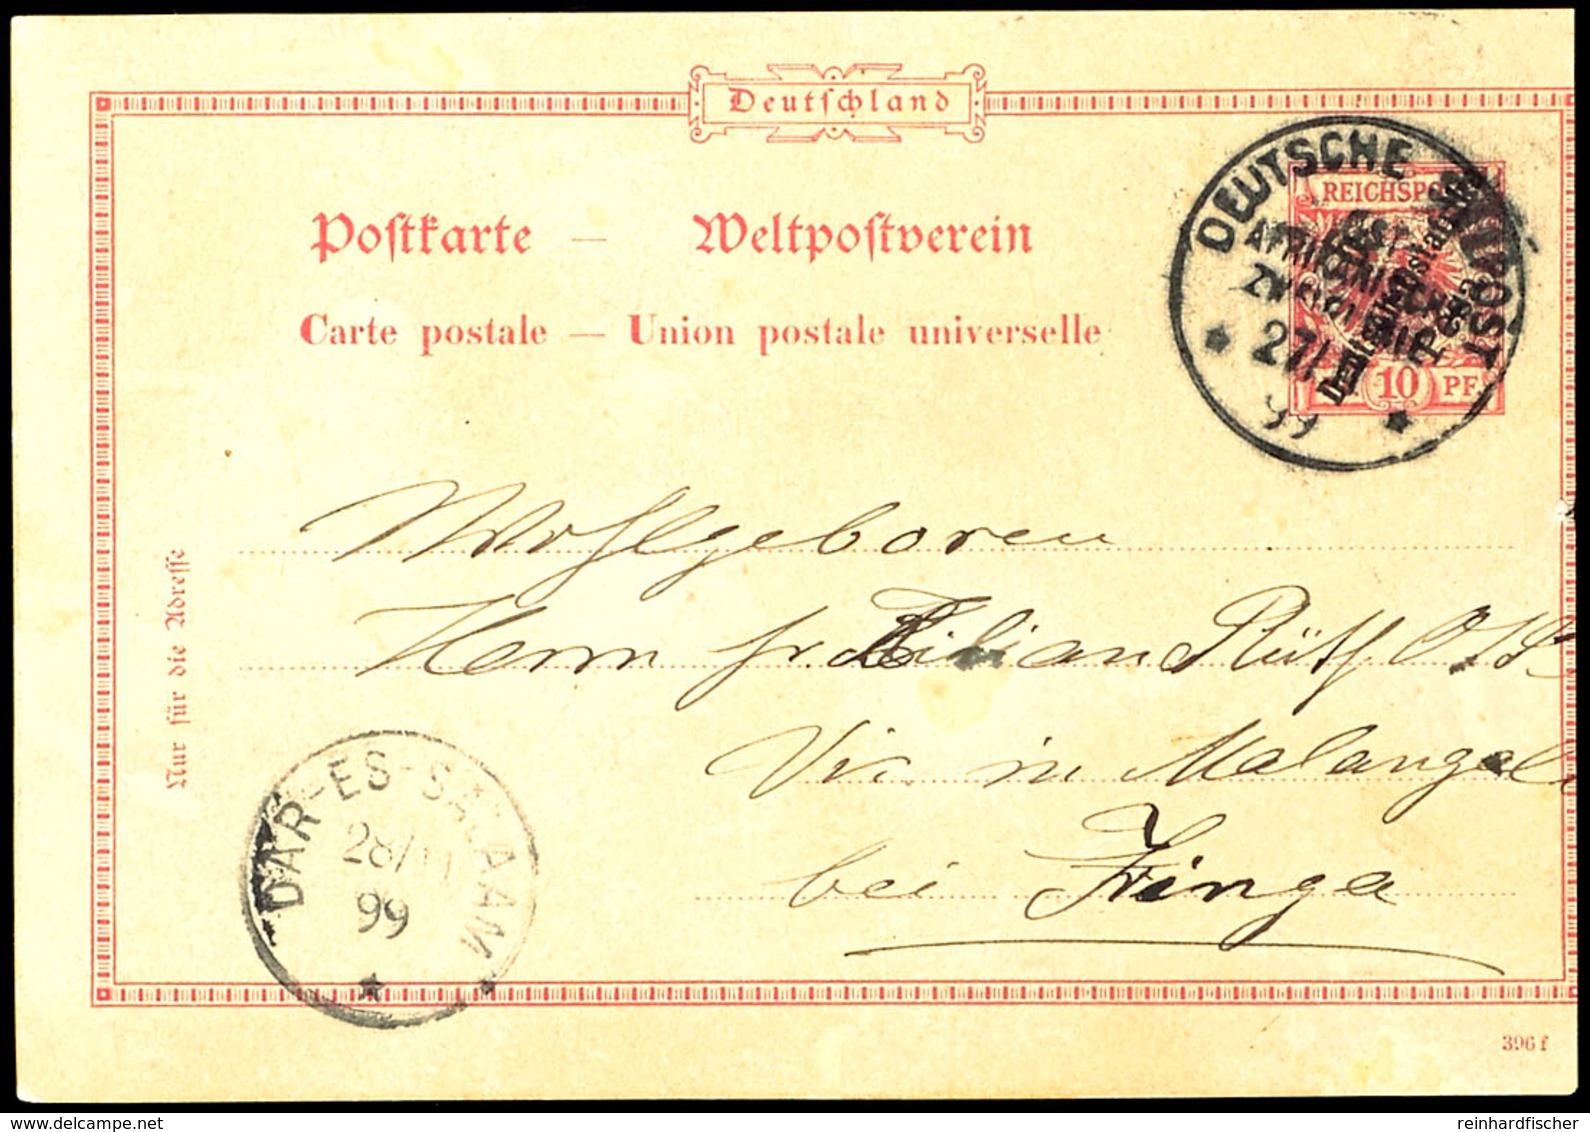 Deutschland
Postkarte — Weltpostverein
Carte postale — Union postale universelle
DEUTSCHE SEEPOST
OST-
AFRIKANISCHE
27/
99
REICHSPOST
10 PF.
Deutsch-Ostafrika
Pesa
Nur für die Adresse
Wohlgeboren
Herrn fr. Kilian
Vic in
bei Iringa
DAR-ES-SALAAM
28/11
99
396 f
reinhardfischer